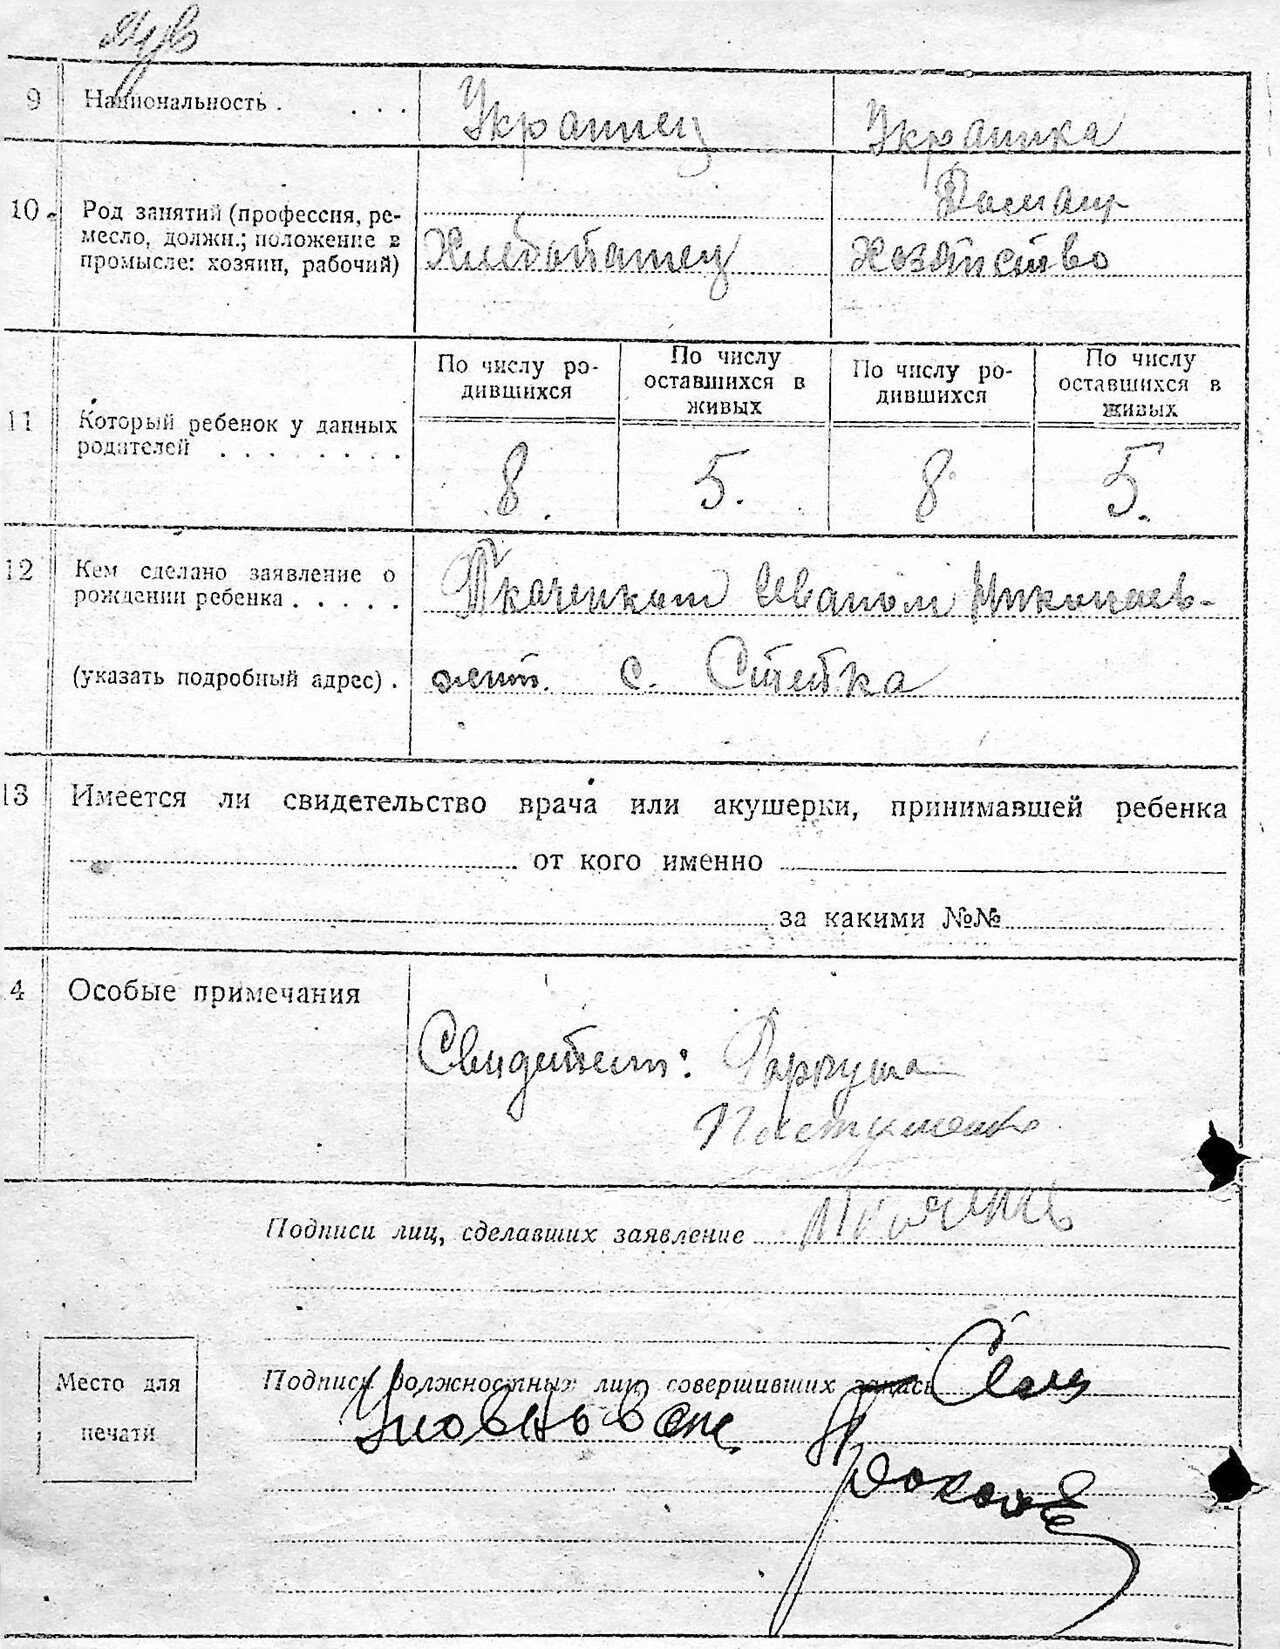 9 Национальность . . . . Украинец Украинка
10. Род занятий (профессия, ре-
месло, должн.; положение в
промысле: хозяин, рабочий)
Хлебопашец
Домашн
Хозяйство
11 Который ребенок у данных
родителей . . . . . . . .
По числу ро-
дившихся
По числу
оставшихся в
живых
По числу ро-
дившихся
По числу
оставшихся в
живых
8. 5. 8 5.
12 Кем сделано заявление о
рождении ребенка . . . . .
(указать подробный адрес) .
Иваном Николаев-
с.
13 Имеется ли свидетельство врача или акушерки, принимавшей ребенка
от кого именно
за какими №№
4 Особые примечания
Свидетели:
Подписи лиц, сделавших заявление
Место для
печати
Подписи должностных лиц совершивших запись